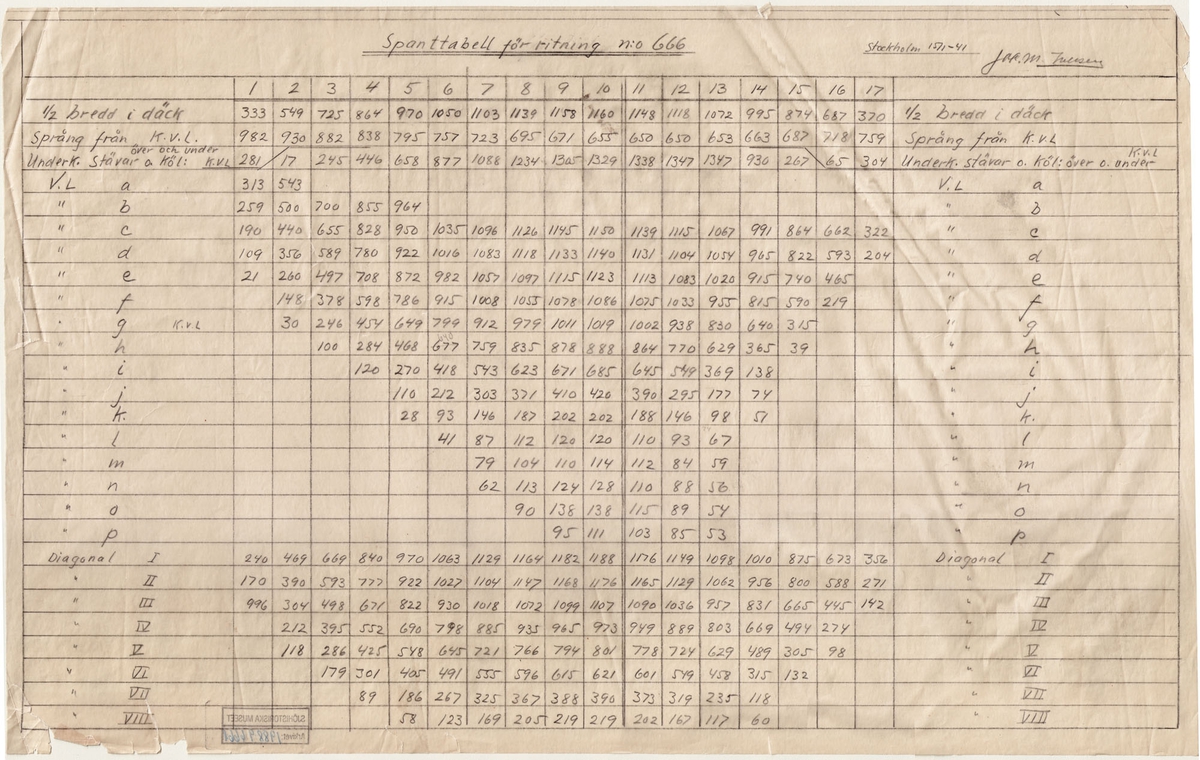 Spanttabell för ritning n:o 666
Stockholm 15/1-41
1 2 3 4 5 6 7 8 9 10 11 12 13 14 15 16 17
1/2 bredd i däck 333 549 725 864 970 1050 1103 1139 1158 1160 1148 1118 1072 995 874 687 370 1/2 bredd i däck
Språng från K.v.L. 982 930 882 838 795 757 723 695 671 655 650 650 653 663 687 718 759 Språng från K.v.L
över och under K.v.L
Underk. Stävar o Köl: K.v.L 281 17 245 446 658 877 1088 1234 1305 1329 1338 1347 1347 930 267 65 304 Underk. stävar o. köl: över o. under
V.L a 313 543 V.L a
" b 259 500 700 855 964 " b
" c 190 440 655 828 950 1035 1096 1126 1145 1150 1139 1115 1067 991 864 662 322 " c
" d 109 356 589 780 922 1016 1083 1118 1133 1140 1131 1104 1054 965 822 593 204 " d
" e 21 260 497 708 872 982 1057 1097 1115 1123 1113 1083 1020 915 740 465 " e
" f 148 378 598 786 915 1008 1055 1078 1086 1075 1033 955 815 590 219 " f
" g K.v.L 30 246 454 649 799 912 979 1011 1019 1002 938 830 640 315 " g
" h 100 284 468 677 759 835 878 888 864 770 629 365 39 " h
" i 120 270 418 543 623 671 685 645 549 369 138 " i
" j 110 212 303 371 410 420 390 295 177 74 " j
" k. 28 93 146 187 202 202 188 146 98 51 " k.
" l 41 87 112 120 120 110 93 67 " l
" m 79 104 110 114 112 84 59 " m
" n 62 113 124 128 110 88 56 " n
" o 90 138 138 115 89 54 " o
" p 95 111 103 85 53 " p
Diagonal I 240 469 669 840 970 1063 1129 1164 1182 1188 1176 1149 1098 1010 875 673 356 Diagonal I
" II 170 390 593 777 922 1027 1104 1147 1168 1176 1165 1129 1062 956 800 588 271 " II
" III 996 304 498 671 822 930 1018 1072 1099 1107 1090 1036 957 831 665 445 142 " III
" IV 212 395 552 690 798 885 935 965 973 949 889 803 669 494 274 " IV
" V 118 286 425 548 645 721 766 794 801 778 724 629 489 305 98 " V
" VI 179 301 405 491 555 596 615 621 601 549 458 315 132 " VI
" VII 89 186 267 325 367 388 390 373 319 235 118 " VII
" VIII 58 123 169 205 219 219 202 167 17 60 " VIII
SJÖHISTORISKA MUSEET